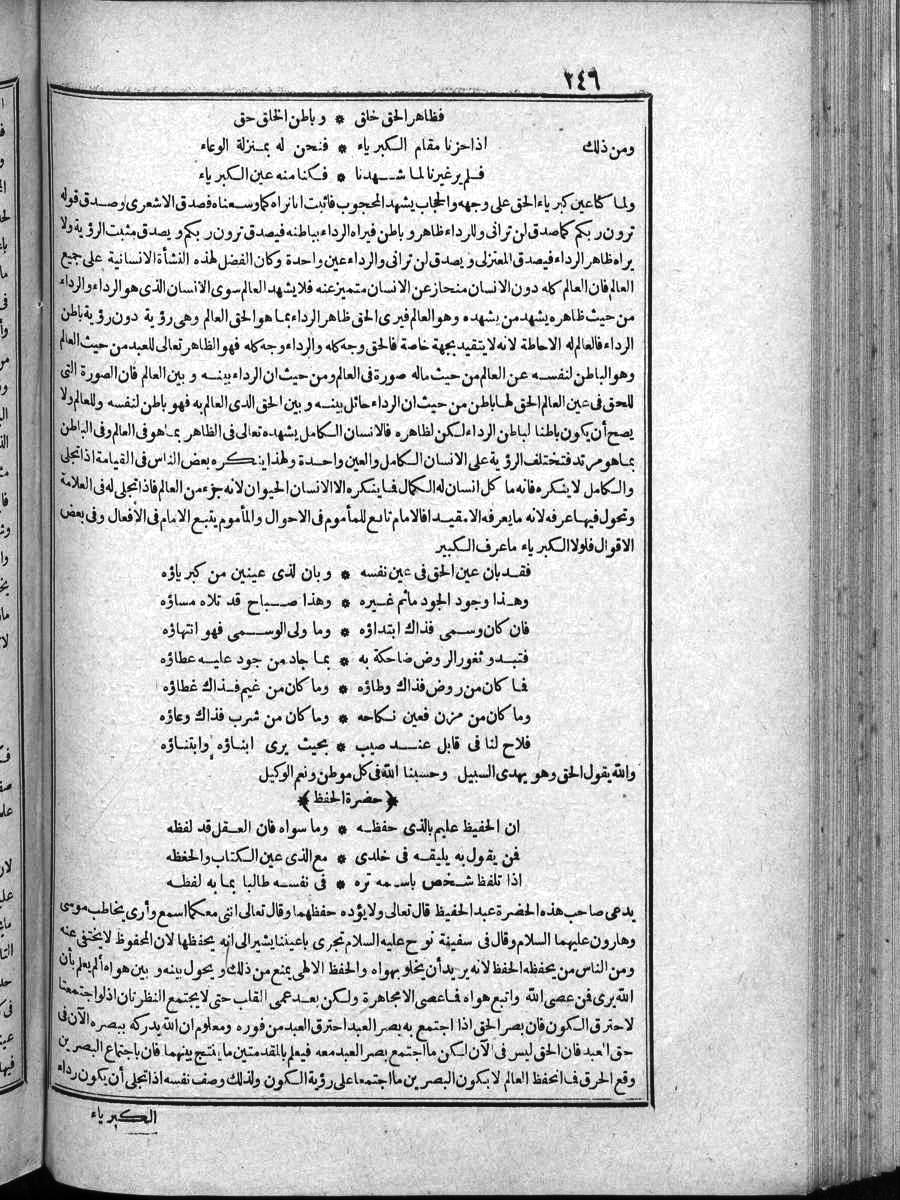 ٢٤٦
فظاهر الحق خلق * وباطن الخلق حق
ومن ذلك اذا حزنا مقام الكبرياء * فنحن له بمنزلة الوعاء
فلم ير غيرنا لما شهدنا * فكنا منه عين الكبرياء
ولما كنا عين كبرياء الحق على وجهه والحجاب يشهد المحجوب فاثبت انا نراه كما وسعناه فصدق الاشعرى وصدق قوله
ترون ربكم كما صدق لن ترانى وللرداء ظاهر وباطن فيراه الرداء بباطنه فيصدق ترون ربكم ويصدق مثبت الرؤية ولا
يراه ظاهر الرداء فيصدق المعتزلى ويصدق لن ترانى والرداء عين واحدة وكان الفضل لهذه النشأة الانسانية على جميع
العالم فان العالم كله دون الانسان منحاز عن الانسان متميز عنه فلا يشهد العالم سوى الانسان الذى هو الرداء والرداء
من حيث ظاهره يشهد من يشهده وهو العالم فيرى الحق ظاهر الرداء بما هو الحق العالم وهى رؤية دون رؤية باطن
الرداء فالعالم له الاحاطة لانه لا يتقيد بجهة خاصة فالحق وجه كله والرداء وجه كله فهو الظاهر تعالى للعبد من حيث العالم
وهو الباطن لنفسه عن العالم من حيث ماله صورة فى العالم ومن حيث ان الرداء بينه وبين العالم فان الصورة التى
للحق فى عين العالم الحق لها باطن من حيث ان الرداء حائل بينه وبين الحق الذى العالم به فهو باطن لنفسه وللعالم ولا
يصح أن يكون باطنا لباطن الرداء لكن لظاهره فالانسان الكامل يشهده تعالى فى الظاهر بما هو فى العالم وفى الباطن
بما هو مرتد فتختلف الرؤية على الانسان الكامل والعين واحدة ولهذا ينكره بعض الناس فى القيامة اذا تجلى
والكامل لا ينكره فانه ما كل انسان له الكمال فما ينكره الا الانسان الحيوان لانه جزء من العالم فاذا تجلى له فى العلامة
وتحول فيها عرفه لانه ما يعرفه الا مقيدا فالامام تابع للمأموم فى الاحوال والمأموم يتبع الامام فى الافعال وفى بعض
الاقوال فلولا الكبرياء ما عرف الكبير
فقد بان عين الحق فى عين نفسه * وبان لذى عينين من كبرياؤه
وهذا وجود الجود ماثم غيره * وهذا صباح قد تلاه مساؤه
فان كان وسمى فذاك ابتداؤه * وما ولى الوسمى فهو انتهاؤه
فتبدو ثغور الروض ضاحكة به * بما جاد من جود عليه عطاؤه
فما كان من روض فذاك وطاؤه * وما كان من غيم فذاك غطاؤه
وما كان من مزن فعين نكاحه * وما كان من شرب فذاك وعاؤه
فلاح لنا فى قابل عند صيب * بحيث يرى ابناؤه وابتناؤه
والله يقول الحق وهو يهدى السبيل وحسبنا الله فى كل موطن ونعم الوكيل
﴿حضرة الحفظ﴾
ان الحفيظ عليم بالذى حفظه * وما سواه فان العقل قد لفظه
فمن يقول به يليقه فى خلدى * مع الذى عين الكتاب والحفظه
اذا تلفظ شخص باسمه تره * فى نفسه طالبا بما به لفظه
يدعى صاحب هذه الحضرة عبد الحفيظ قال تعالى ولا يؤده حفظهما وقال تعالى اننى معكما اسمع وأرى يخاطب موسى
وهارون عليهما السلام وقال فى سفينة نوح عليه السلام تجرى باعيننا يشير الى انه يحفظها لان المحفوظ لا يختفى عنه
ومن الناس من يحفظه الحفظ لانه يريد أن يخلو بهواه والحفظ الالهى يمنع من ذلك ويحول بينه وبين هواه ألم يعلم بأن
الله يرى فمن عصى الله واتبع هواه فما عصى الا مجاهرة ولكن بعد عمى القلب حتى لا يجتمع النظرتان اذ لو اجتمعتا
لاحترق الكون فان بصر الحق اذا اجتمع به بصر العبد احترق العبد من فوره ومعلوم ان الله يدركه ببصره الآن فى
حق العبد فان الحق ليس فى الآن لكن ما اجتمع بصر العبد معه فيعلم بالمقدمتين ما ينتج بينهما فان باجتماع البصرين
وقع الحرق فما انحفظ العالم الا بكون البصرين ما اجتمعا على رؤية الكون ولذلك وصف نفسه اذا تجلى أن يكون رداء
الكبرياء